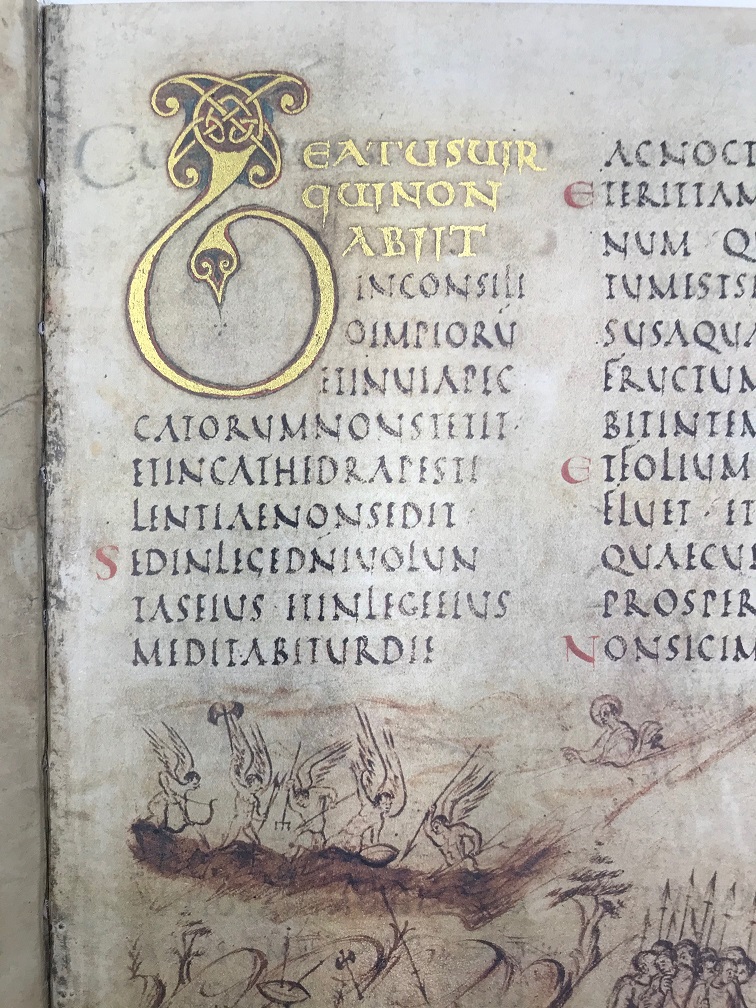 BEATUSUIR
QUINON
ABIIT
INCONSILI
OIMPIORU
ETINUIAPEC
CATORUMNONSTETIT
ETINCATHEDRAPESTI
LENTIAENONSEDIT
SEDINLEGEDNIUOLUN
TASEIUS ETINLEGEEIUS
MEDITABITURDIE
ACNOCT
ETERITTAM
NUM QU
TUMESTSE
SUSAQUA
FRUCTUM
BITINTEM
ETFOLIUM
FLUET ET
QUAECUM
PROSPER
NONSICIM